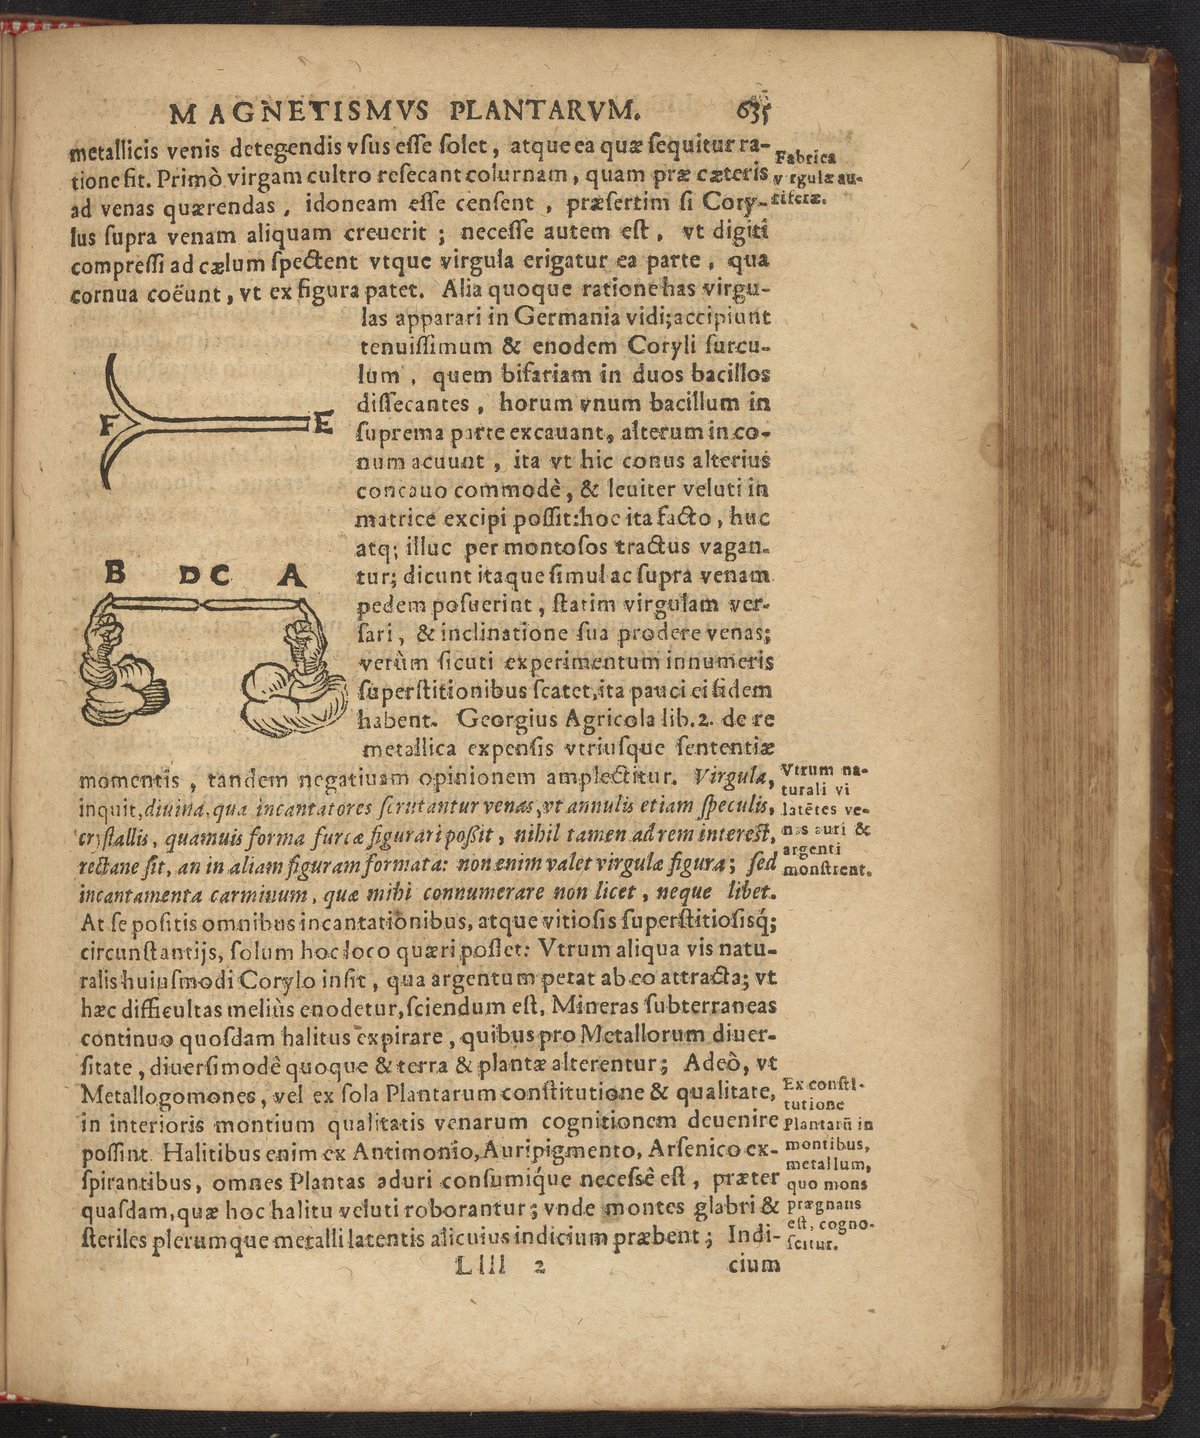 MAGNETISMVS PLANTARVM. 635
metallicis venis detegendis vſus eſſe ſolet, atque ea quæ ſequitur ra-
tione fit. Primò virgam cultro reſecant colurnam, quam præ cæteris
ad venas quærendas, idoneam eſſe cenſent, præſertim ſi Cory-
lus ſupra venam aliquam creuerit; neceſſe autem eſt, vt digiti
compreſſi ad cælum ſpectent vtque virgula erigatur ea parte, qua
cornua coëunt, vt ex figura patet. Alia quoque ratione has virgu-
Fabrica
virgulæ au-
riferæ.
las apparari in Germania vidi; accipiunt
tenuiſſimum & enodem Coryli ſurcu-
lum, quem bifariam in duos bacillos
diſſecantes, horum vnum bacillum in
ſuprema parte excauant, alterum in co-
num acuunt, ita vt hic conus alterius
concauo commodè, & leuiter veluti in
matrice excipi poſſit: hoc ita facto, huc
atq; illuc per montoſos tractus vagan-
tur; dicunt itaque ſimul ac ſupra venam
pedem poſuerint, ſtatim virgulam ver-
ſari, & inclinatione ſua prodere venas;
verùm ſicuti experimentum innumeris
ſuperſtitionibus ſcatet, ita pauci ei fidem
habent. Georgius Agricola lib. 2. de re
metallica expenſis vtriuſque ſententiæ
F E
B D C A
momentis, tandem negatiuam opinionem amplectitur. Virgula,
inquit, diuina, qua incantatores ſcrutantur venas, vt annulis etiam ſpeculis,
cryſtallis, quamuis forma furcæ figurari poßit, nihil tamen ad rem intereſt,
rectane ſit, an in aliam figuram formata: non enim valet virgulæ figura; ſed
incantamenta carminum, quæ mihi connumerare non licet, neque libet.
Vtrum na-
turali vi
latētes ve-
nas auri &
argenti
monſtrent.
At ſe poſitis omnibus incantationibus, atque vitioſis ſuperſtitioſisq́;
circunſtantijs, ſolum hoc loco quæri poſſet: Vtrum aliqua vis natu-
ralis huiuſmodi Corylo inſit, qua argentum petat ab eo attracta; vt
hæc difficultas meliùs enodetur, ſciendum eſt, Mineras ſubterraneas
continuo quoſdam halitus expirare, quibus pro Metallorum diuer-
ſitate, diuerſimodè quoque & terra & plantæ alterentur; Adeò, vt
Metallogomones, vel ex ſola Plantarum conſtitutione & qualitate,
in interioris montium qualitatis venarum cognitionem deuenire
poſſint. Halitibus enim ex Antimonio, Auripigmento, Arſenico ex-
ſpirantibus, omnes Plantas aduri conſumiq́ue neceſsê eſt, præter
quaſdam, quæ hoc halitu veluti roborantur; vnde montes glabri &
ſteriles plerumque metalli latentis alicuius indicium præbent; Indi-
Ex conſti-
tutione
Plantarū in
montibus,
metallum,
quo mons
prægnans
eſt, cogno-
ſcitur.
Llll 2 cium